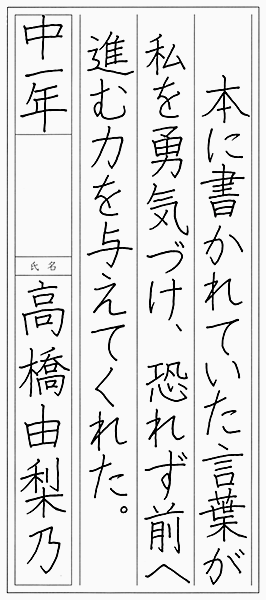 本に書かれていた言葉が
私を勇気づけ、恐れず前へ
進む力を与えてくれた。
中一年
氏名
高橋由梨乃